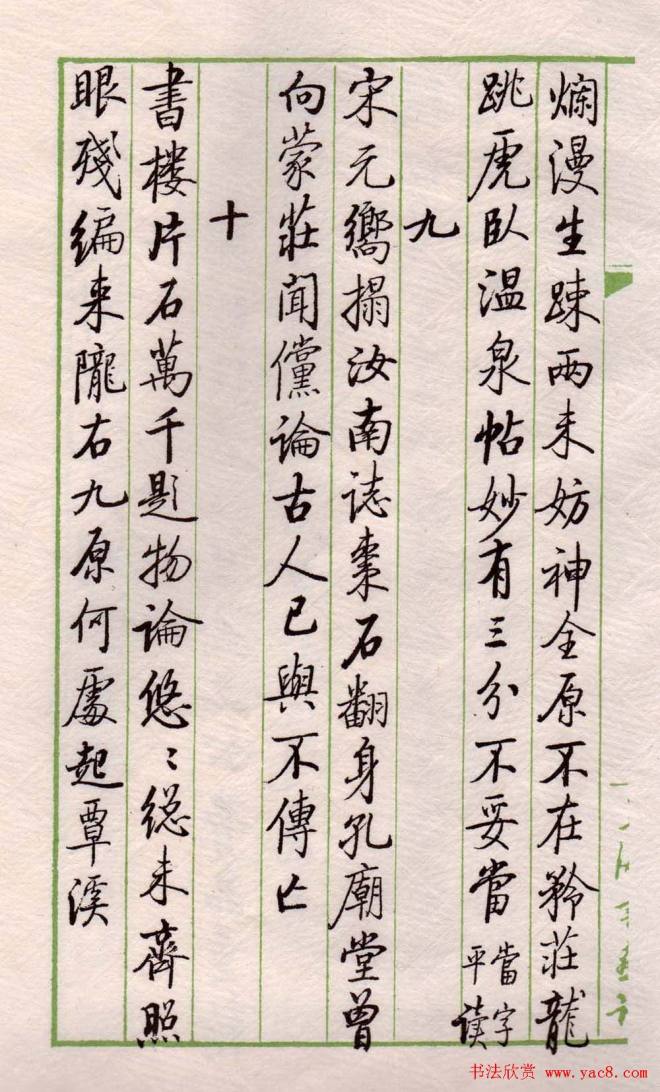 爛漫生踈兩未妨神全原不在矜莊龍
跳虎臥温泉帖妙有三分不妥當
當字
平讀
九
宋元嚮搨汝南誌棗石翻身孔廟堂曾
向蒙莊聞儻論古人已與不傳亡
十
書樓片石萬千題物論悠〻總未齊照
眼殘編來隴右九原何處起覃溪
书法欣赏 www.yac8.com